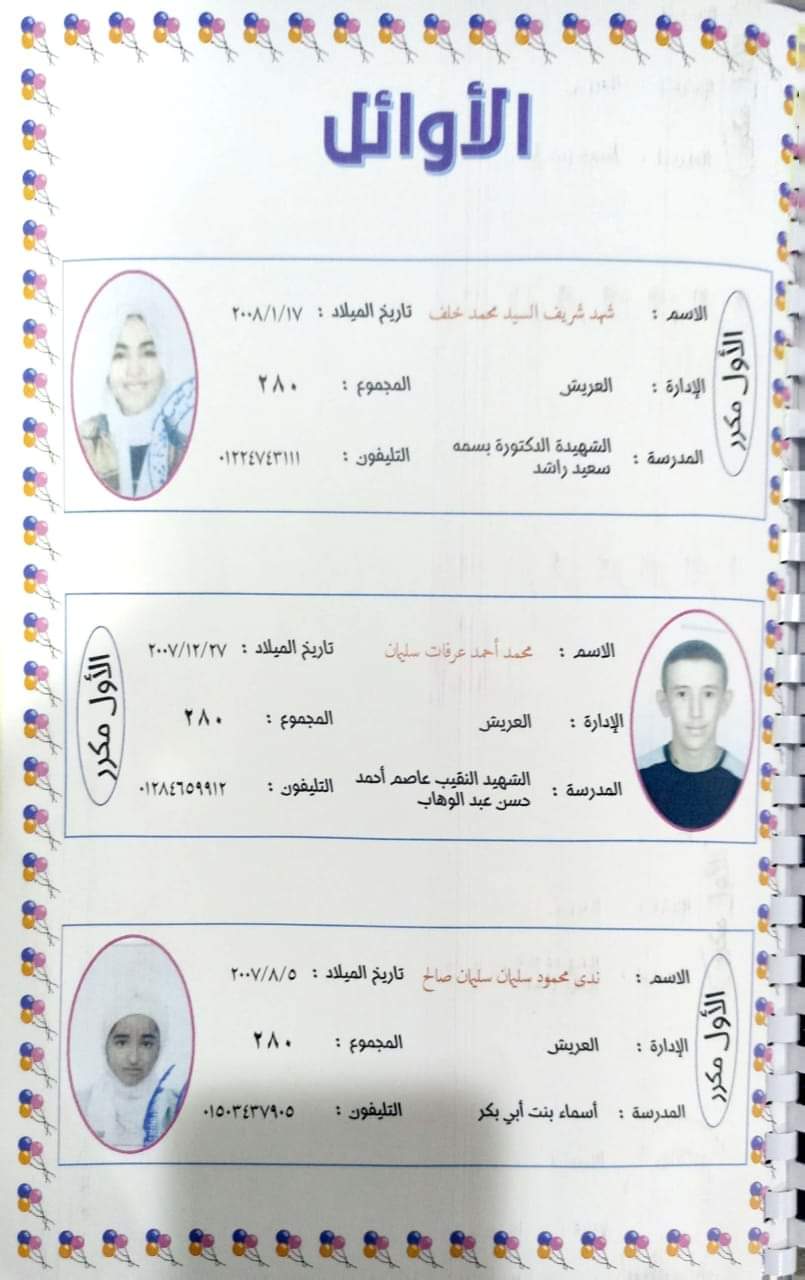 الأوائل
الأول مكرر
الاسم : شهد شريف السيد محمد خلف تاريخ الميلاد : ٢٠٠٨/١/١٧
الإدارة : العريش المجموع : ٢٨٠
المدرسة : الشهيدة الدكتورة بسمه
سعيد راشد
التليفون : ٠١٢٢٤٧٤٣١١١
الاسم : محمد أحمد عرفات سليمان تاريخ الميلاد : ٢٠٠٧/١٢/٢٧
الإدارة : العريش المجموع : ٢٨٠
المدرسة : الشهيد النقيب عاصم أحمد
حسن عبد الوهاب
التليفون : ٠١٢٨٤٦٥٩٩١٢
الأول مكرر
الأول مكرر
الاسم : ندى محمود سليمان سليمان صالح تاريخ الميلاد : ٢٠٠٧/٨/٥
الإدارة : العريش المجموع : ٢٨٠
المدرسة : أسماء بنت أبي بكر التليفون : ٠١٥٠٣٤٣٧٩٠٥